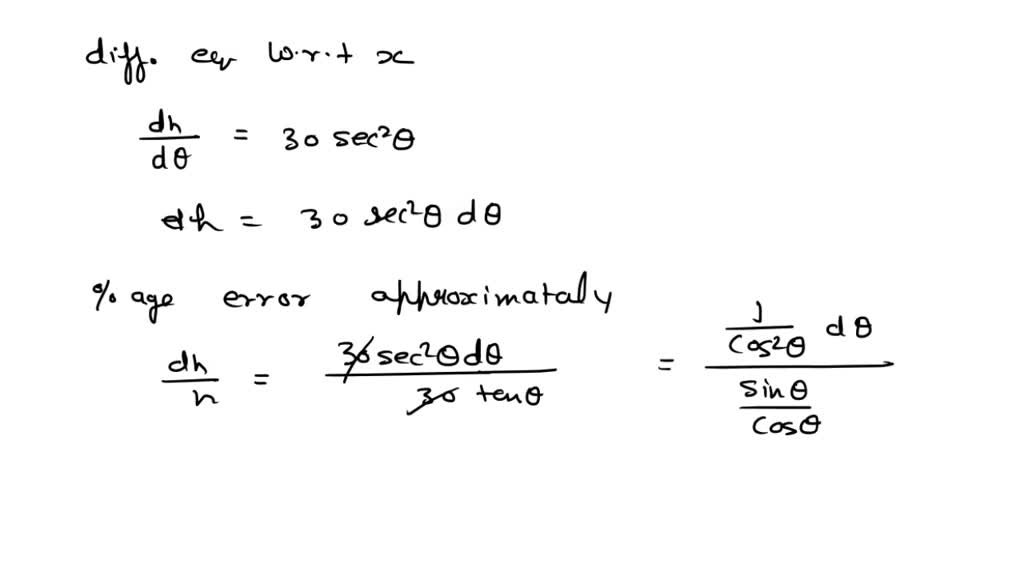 diff. eqn w.r.t x
dh/dθ = 30 sec²θ
dh = 30 sec²θ dθ
% age error approximataly
dh/h = 30 sec²θ dθ / 30 tanθ = (1/cos²θ dθ) / (sinθ/cosθ)